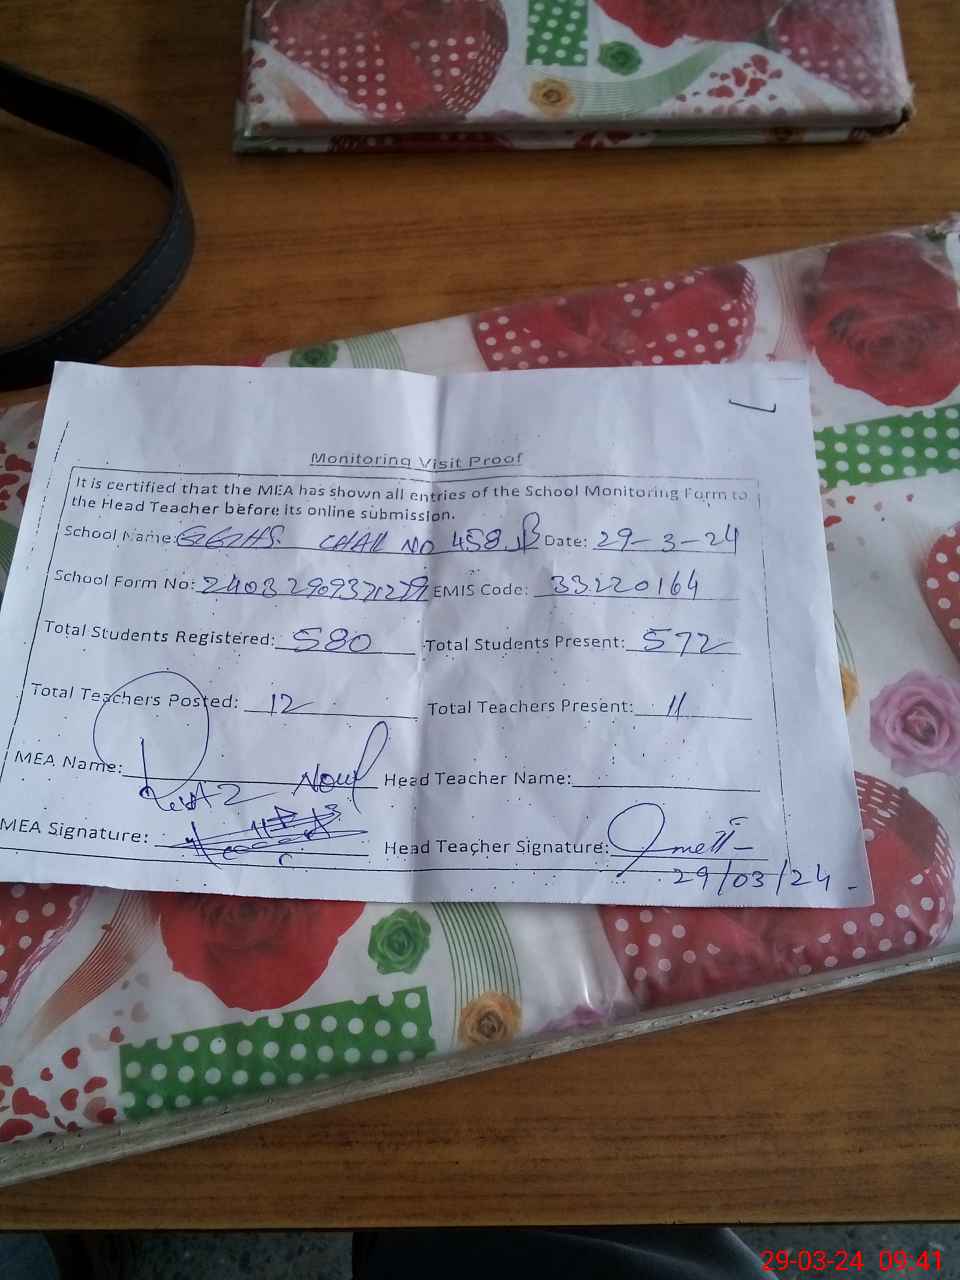 Monitoring Visit Proof
It is certified that the MEA has shown all entries of the School Monitoring Form to
the Head Teacher before its online submission.
School Name: GGHS. CHAK NO 458. JB Date: 29-3-24
School Form No: EMIS Code: 33220164
Total Students Registered: 580 Total Students Present: 572
Total Teachers Posted: 12 Total Teachers Present: 11
MEA Name: Head Teacher Name:
MEA Signature: Head Teacher Signature:
29/03/24
29-03-24 09:41